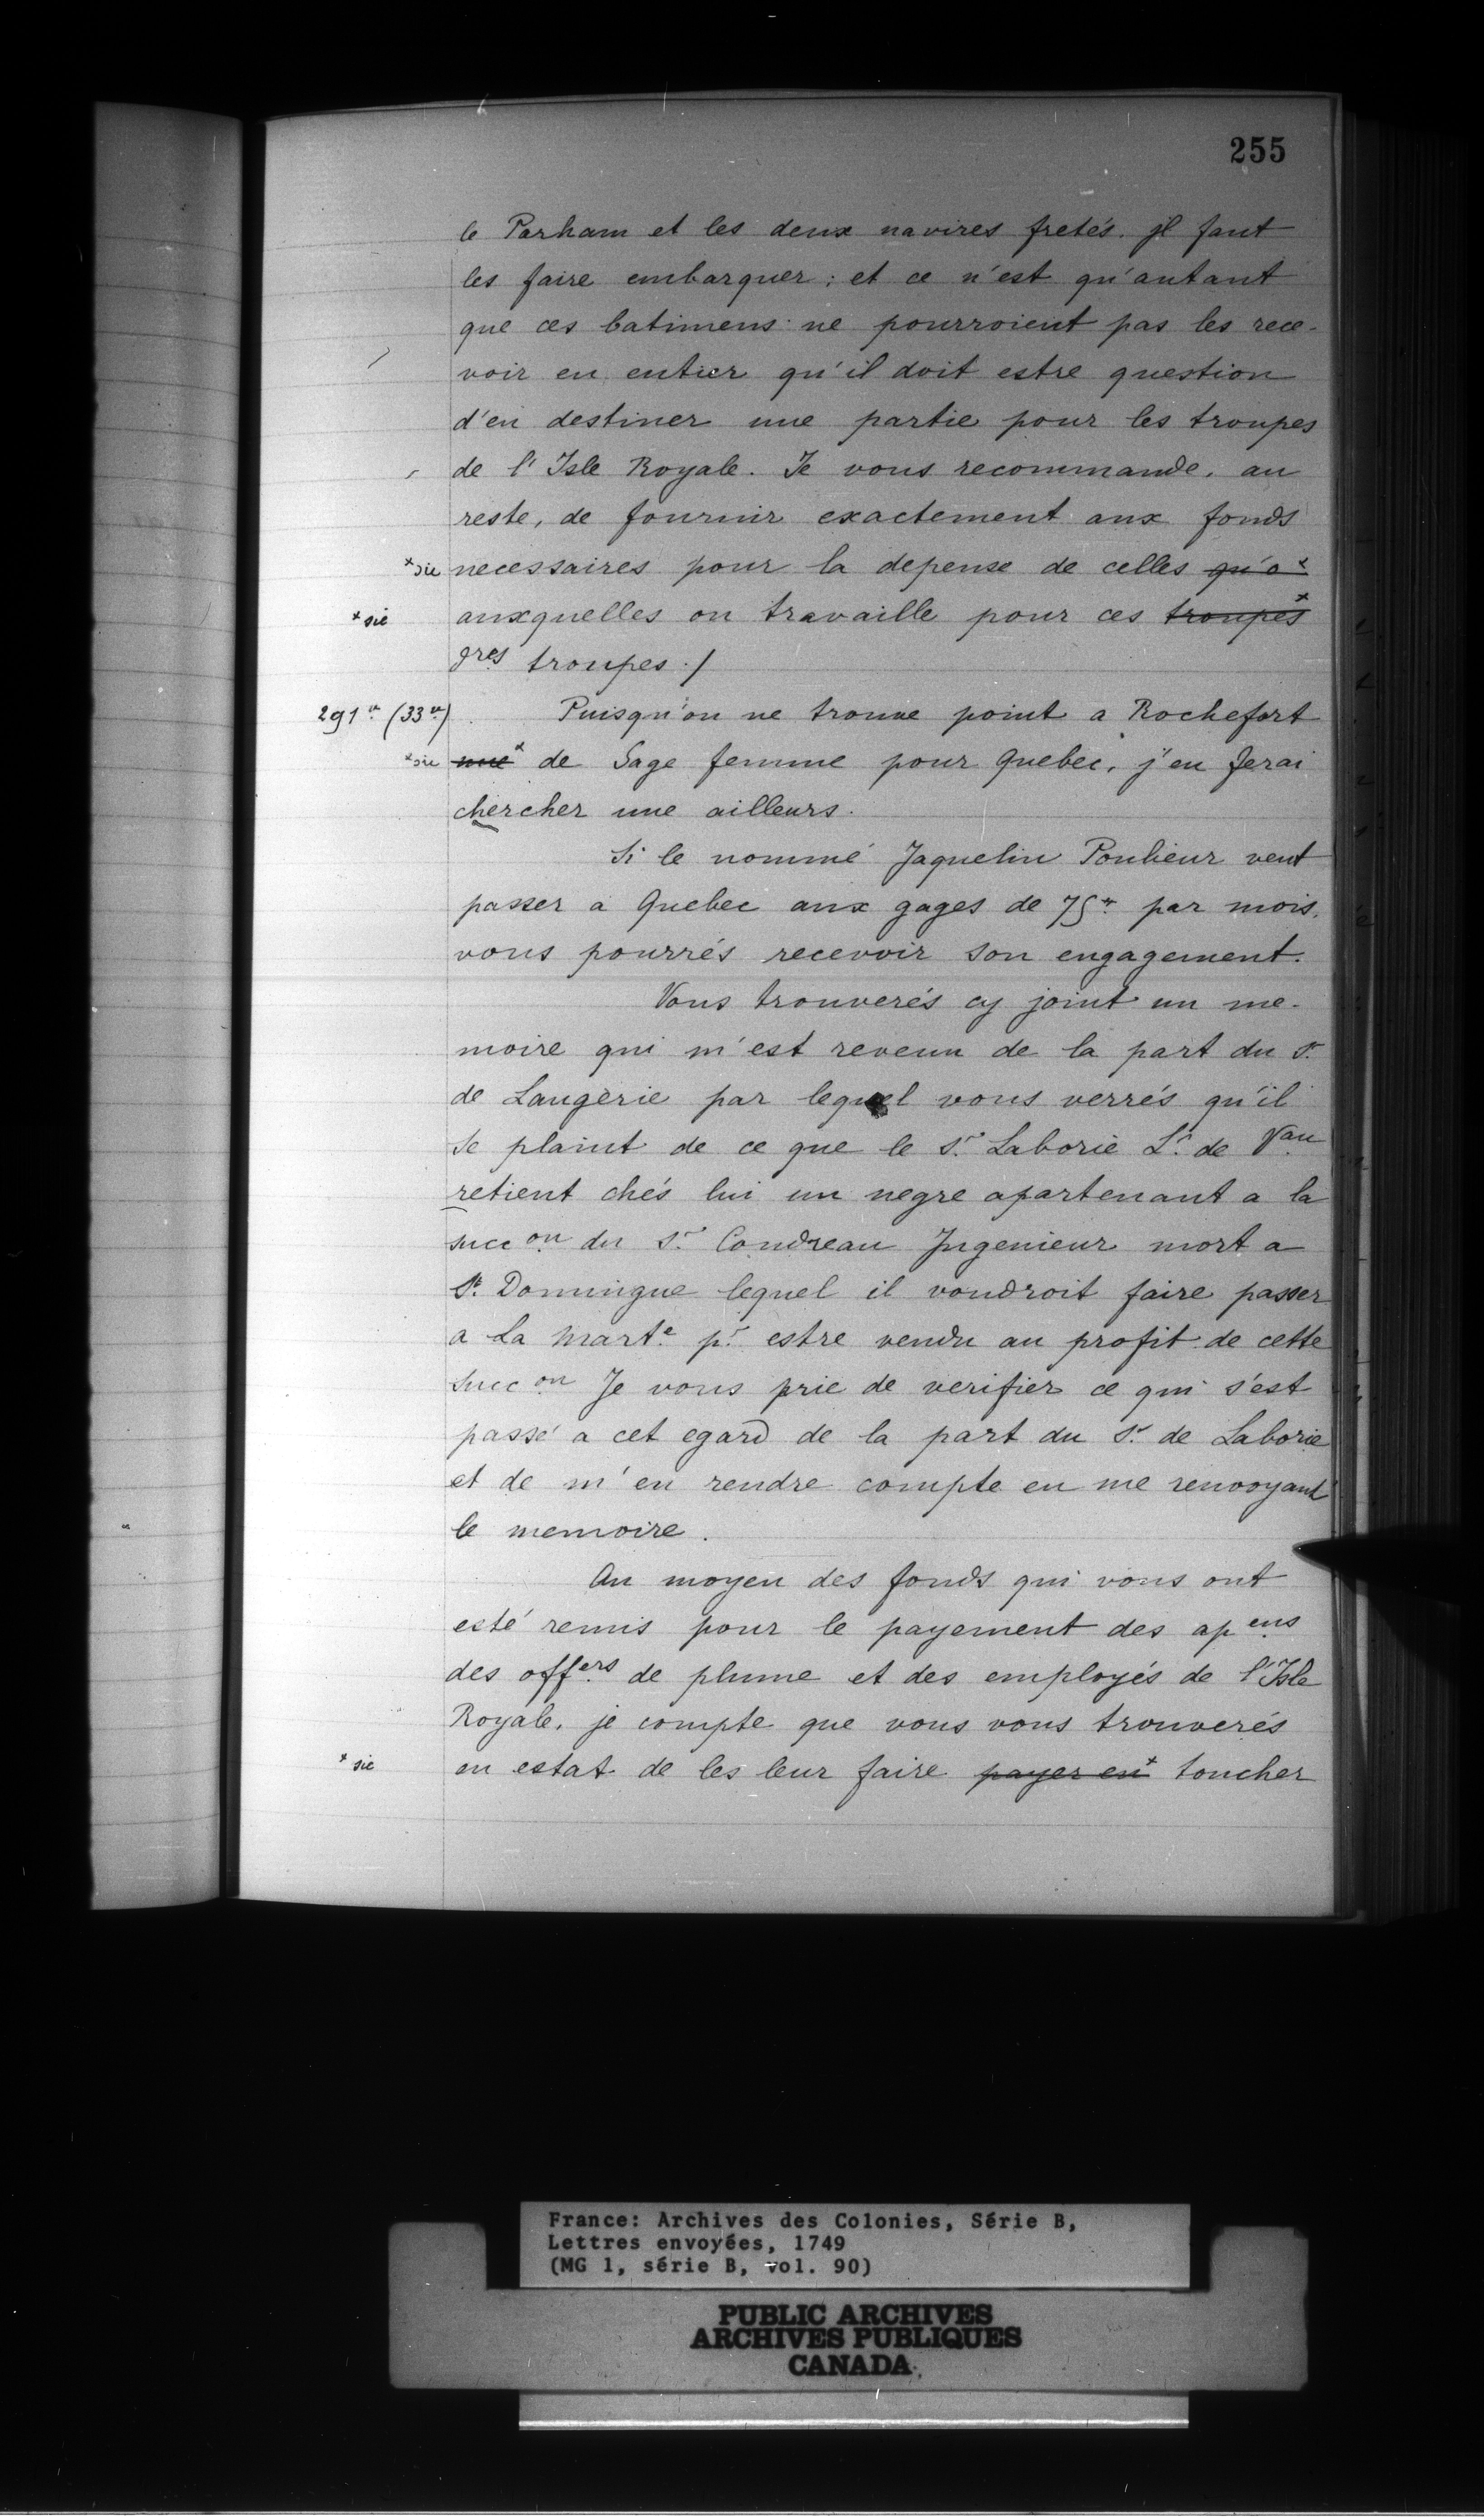 255
le Parham et les deux navires fretés. jl faut
les faire embarquer ; et ce n'est qu'autant
que ces batimens ne pourroient pas les rece-
voir en entier qu'il doit estre question
d'en destiner une partie pour les troupes
de l'Isle Royale. Je vous recommande, au
reste, de fournir exactement aux fonds
*sic necessaires pour la depense de celles qu'o*
*sic auxquelles on travaille pour ces troupes*
gres troupes ./
291vo (33vo) Puisqu'on ne trouve point a Rochefort
*sic une* de Sage femme pour Quebec, j'en ferai
chercher une ailleurs.
Si le nommé Jaquelin Poulieur veut
passer a Quebec aux gages de 75tt par mois,
vous pourrés recevoir son engagement.
Vous trouverés cy joint un me-
moire qui m'est revenu de la part du Sr.
de Laugerie par lequel vous verrés qu'il
se plaint de ce que le Sr. Laborie Lt. de Vau
retient chés lui un negre apartenant a la
succon du Sr. Coudreau Jngenieur mort a
St. Domingue lequel il voudroit faire passer
a La Marte. pr. estre vendu au profit de cette
succon Je vous prie de verifier ce qui s'est
passé a cet egard de la part du Sr. de Laborie
et de m'en rendre compte en me renvoyant
le memoire.
Au moyen des fonds qui vous ont
esté remis pour le payement des apens
des offers de plume et des employés de l'Isle
Royale, je compte que vous vous trouverés
*sic en estat de les leur faire payer en* toucher
France: Archives des Colonies, Série B,
Lettres envoyées, 1749
(MG 1, série B, vol. 90)
PUBLIC ARCHIVES
ARCHIVES PUBLIQUES
CANADA